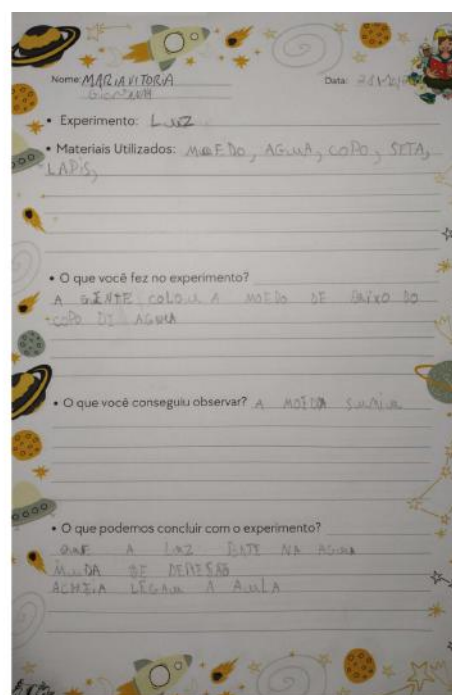 Nome: MARIA VITORIA Data:
• Experimento: LUZ
• Materiais Utilizados: MUEDO, AGUA, COPO, SETA,
LAPIS,
• O que você fez no experimento?
A GENTE COLOU A MOEDO DE BAIXO DO
COPO DI AGUA
• O que você conseguiu observar? A MOEDA SUMIU
• O que podemos concluir com o experimento?
QUE A LUZ BATE NA AGUA
MUDA DE
ACHEIA LEGAU A AULA